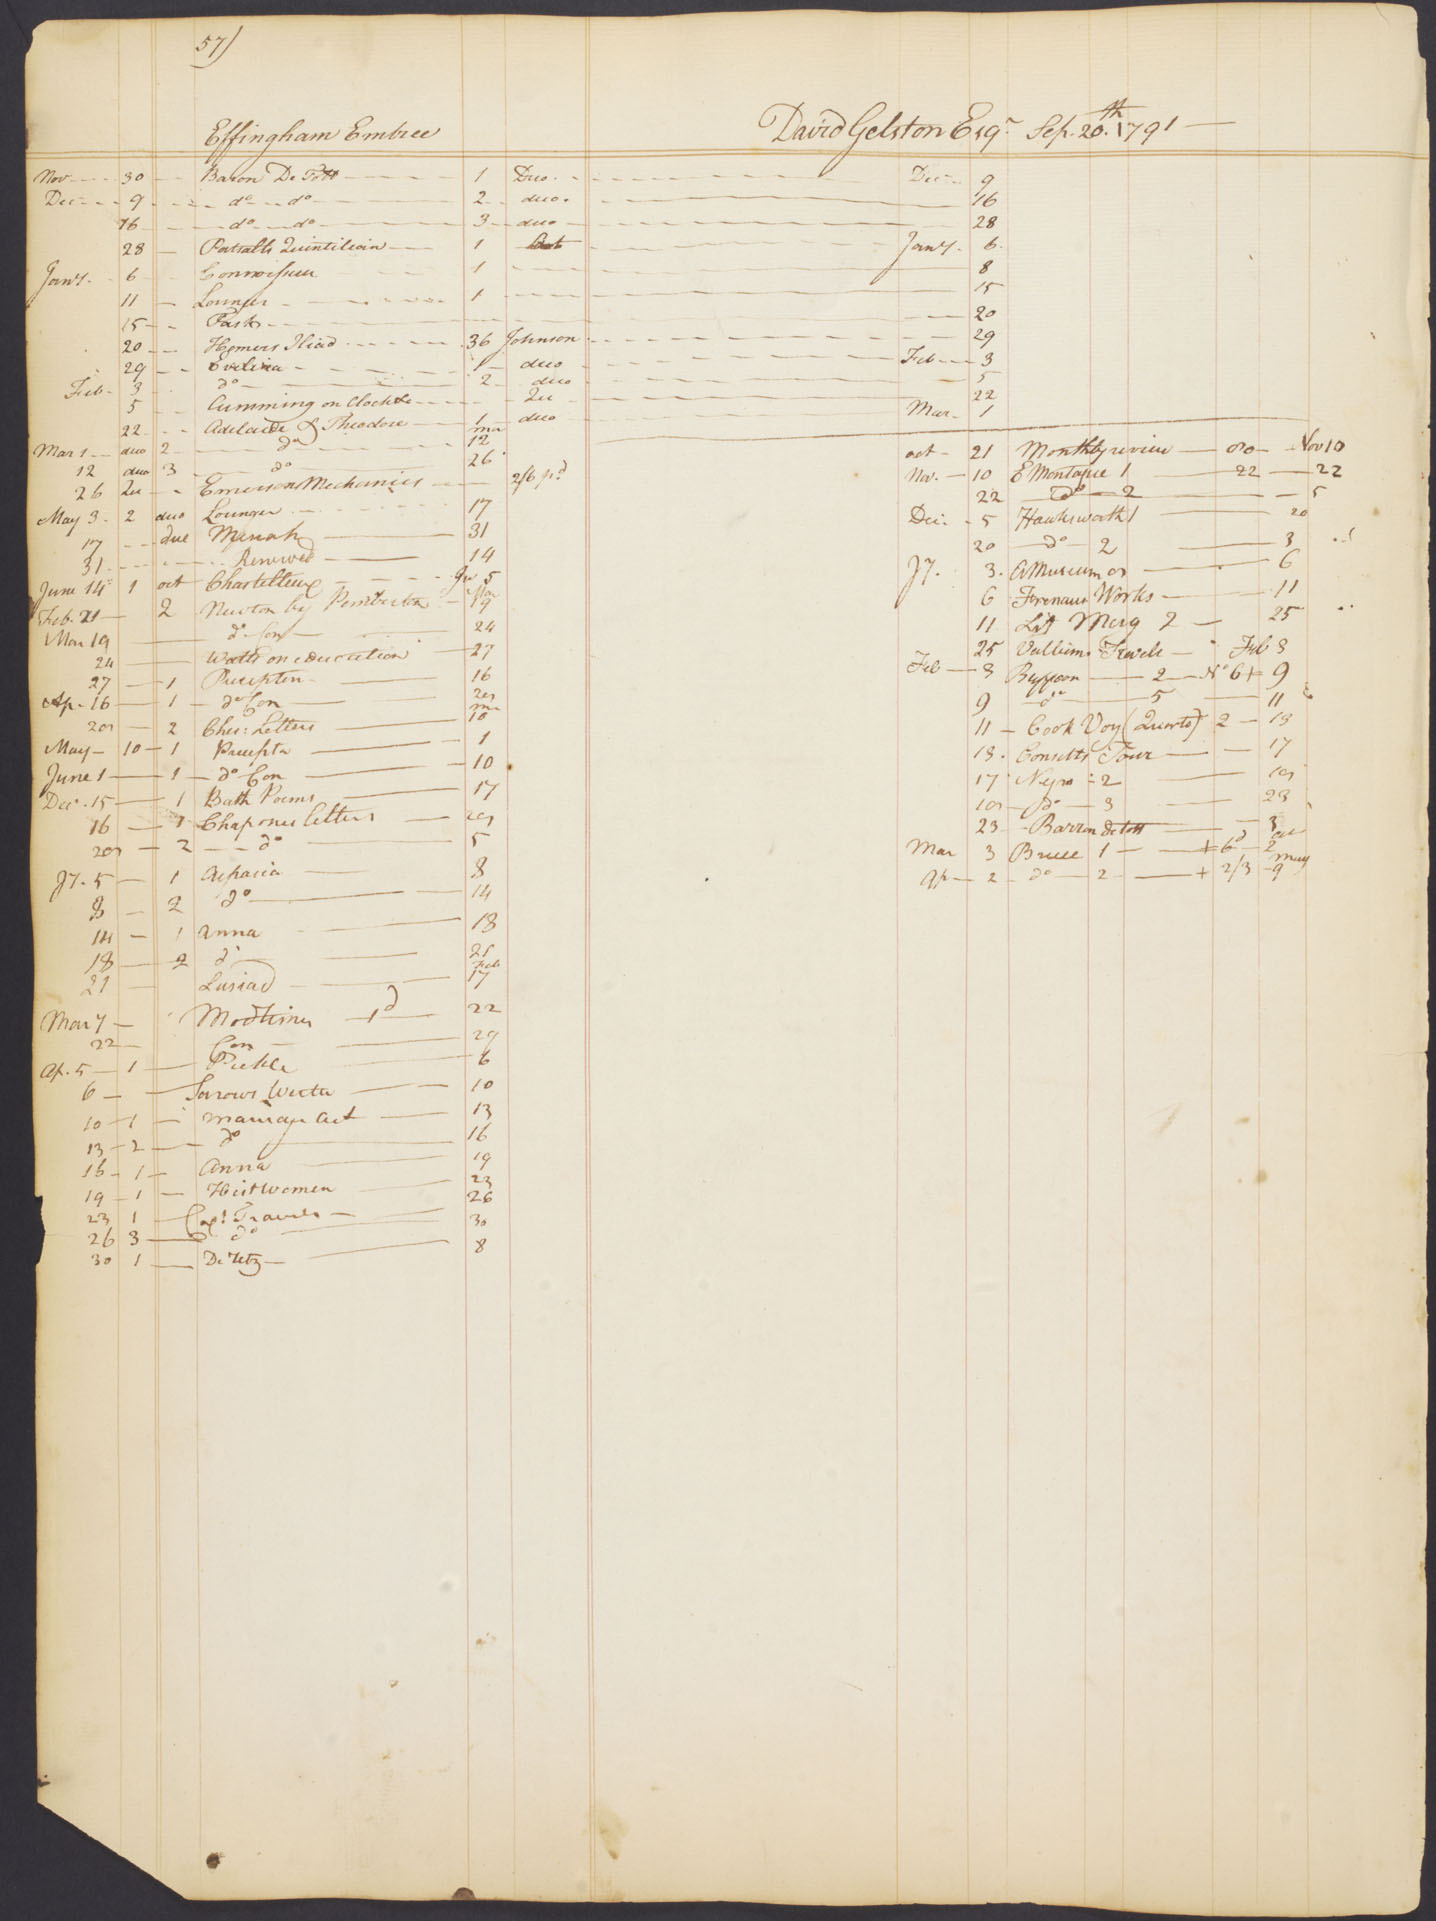 57)
Effingham Embree
Nov 30 Baron De Tott 1 Duo. Dec 9
Dec 9 do do 2 duo. 16
16 do do 3 duo 28
28 Patsalls Quintilian 1 Oct Jany. 6.
Jany. 6 Connoisseur 1 8
11 Lounger 1 15
15 Task 20
20 Homers Iliad 36 Johnson 29
29 Evelina 1 duo Feb 3
Feb 3 do 2 duo 5
5 Cumming on Clock &c Qu 22
22 Adelaide & Theodore 1 duo Mar 1
Mar 1 duo 2 do mar 12
12 duo 3 do 26
26 Qu Emerson Mechanics 2/6 pd
May 3. 2 duo Lounger 17
17 due 31
31 Renewed 14
June 14 1 oct Chastelleux Ju 5
Feb. 21 2 Newton by Pemberton Mar 19
Mar 19 do Con 24
24 Watts on education 27
27 1 Preceptor 16
Ap. 16 1 do Con
2 Ches: Letters 10
May 10 1 Precepter 1
June 1 1 do Con 10
Dec. 15 1 Bath Poems 17
16 1 Chapones letters
2 do 5
Jy. 5 1 Aspasia 8
8 2 do 14
14 1 Anna 18
18 2 do 21
21 Lusiad Feb 17
Mar 7 1d 22
22 Con 29
Ap. 5 1 Pickle 6
6 Sorrows Werter 10
10 1 marriage Act 13
13 2 do 16
16 1 Anna 19
19 1 Hist Women 23
23 1 Travels 26
26 3 do 30
30 1 De Retz 8
David Gelston Esqr Sep. 20th. 1791
oct 21 Monthly review Nov 10
Nov. 10 E Montague 1 22 22
22 do 2 5
Dec. 5 Hawksworth 1 20
20 do 2 3
Jy. 3. A Museum 6
6 Works 11
11 Lit Merg 2 25
25 Travels Feb 3
Feb 3 Buffoon 2 No 6+ 9
9 do 5 11
11 Cook Voy (Quarto) 2 13
13. Consetts Tour 17
17 Negro 2
do 3 23
23 Barron de tott 3
Mar 3 Bruce 1 + 6d 2
Ap 2 do 2 + 2/3 9 may